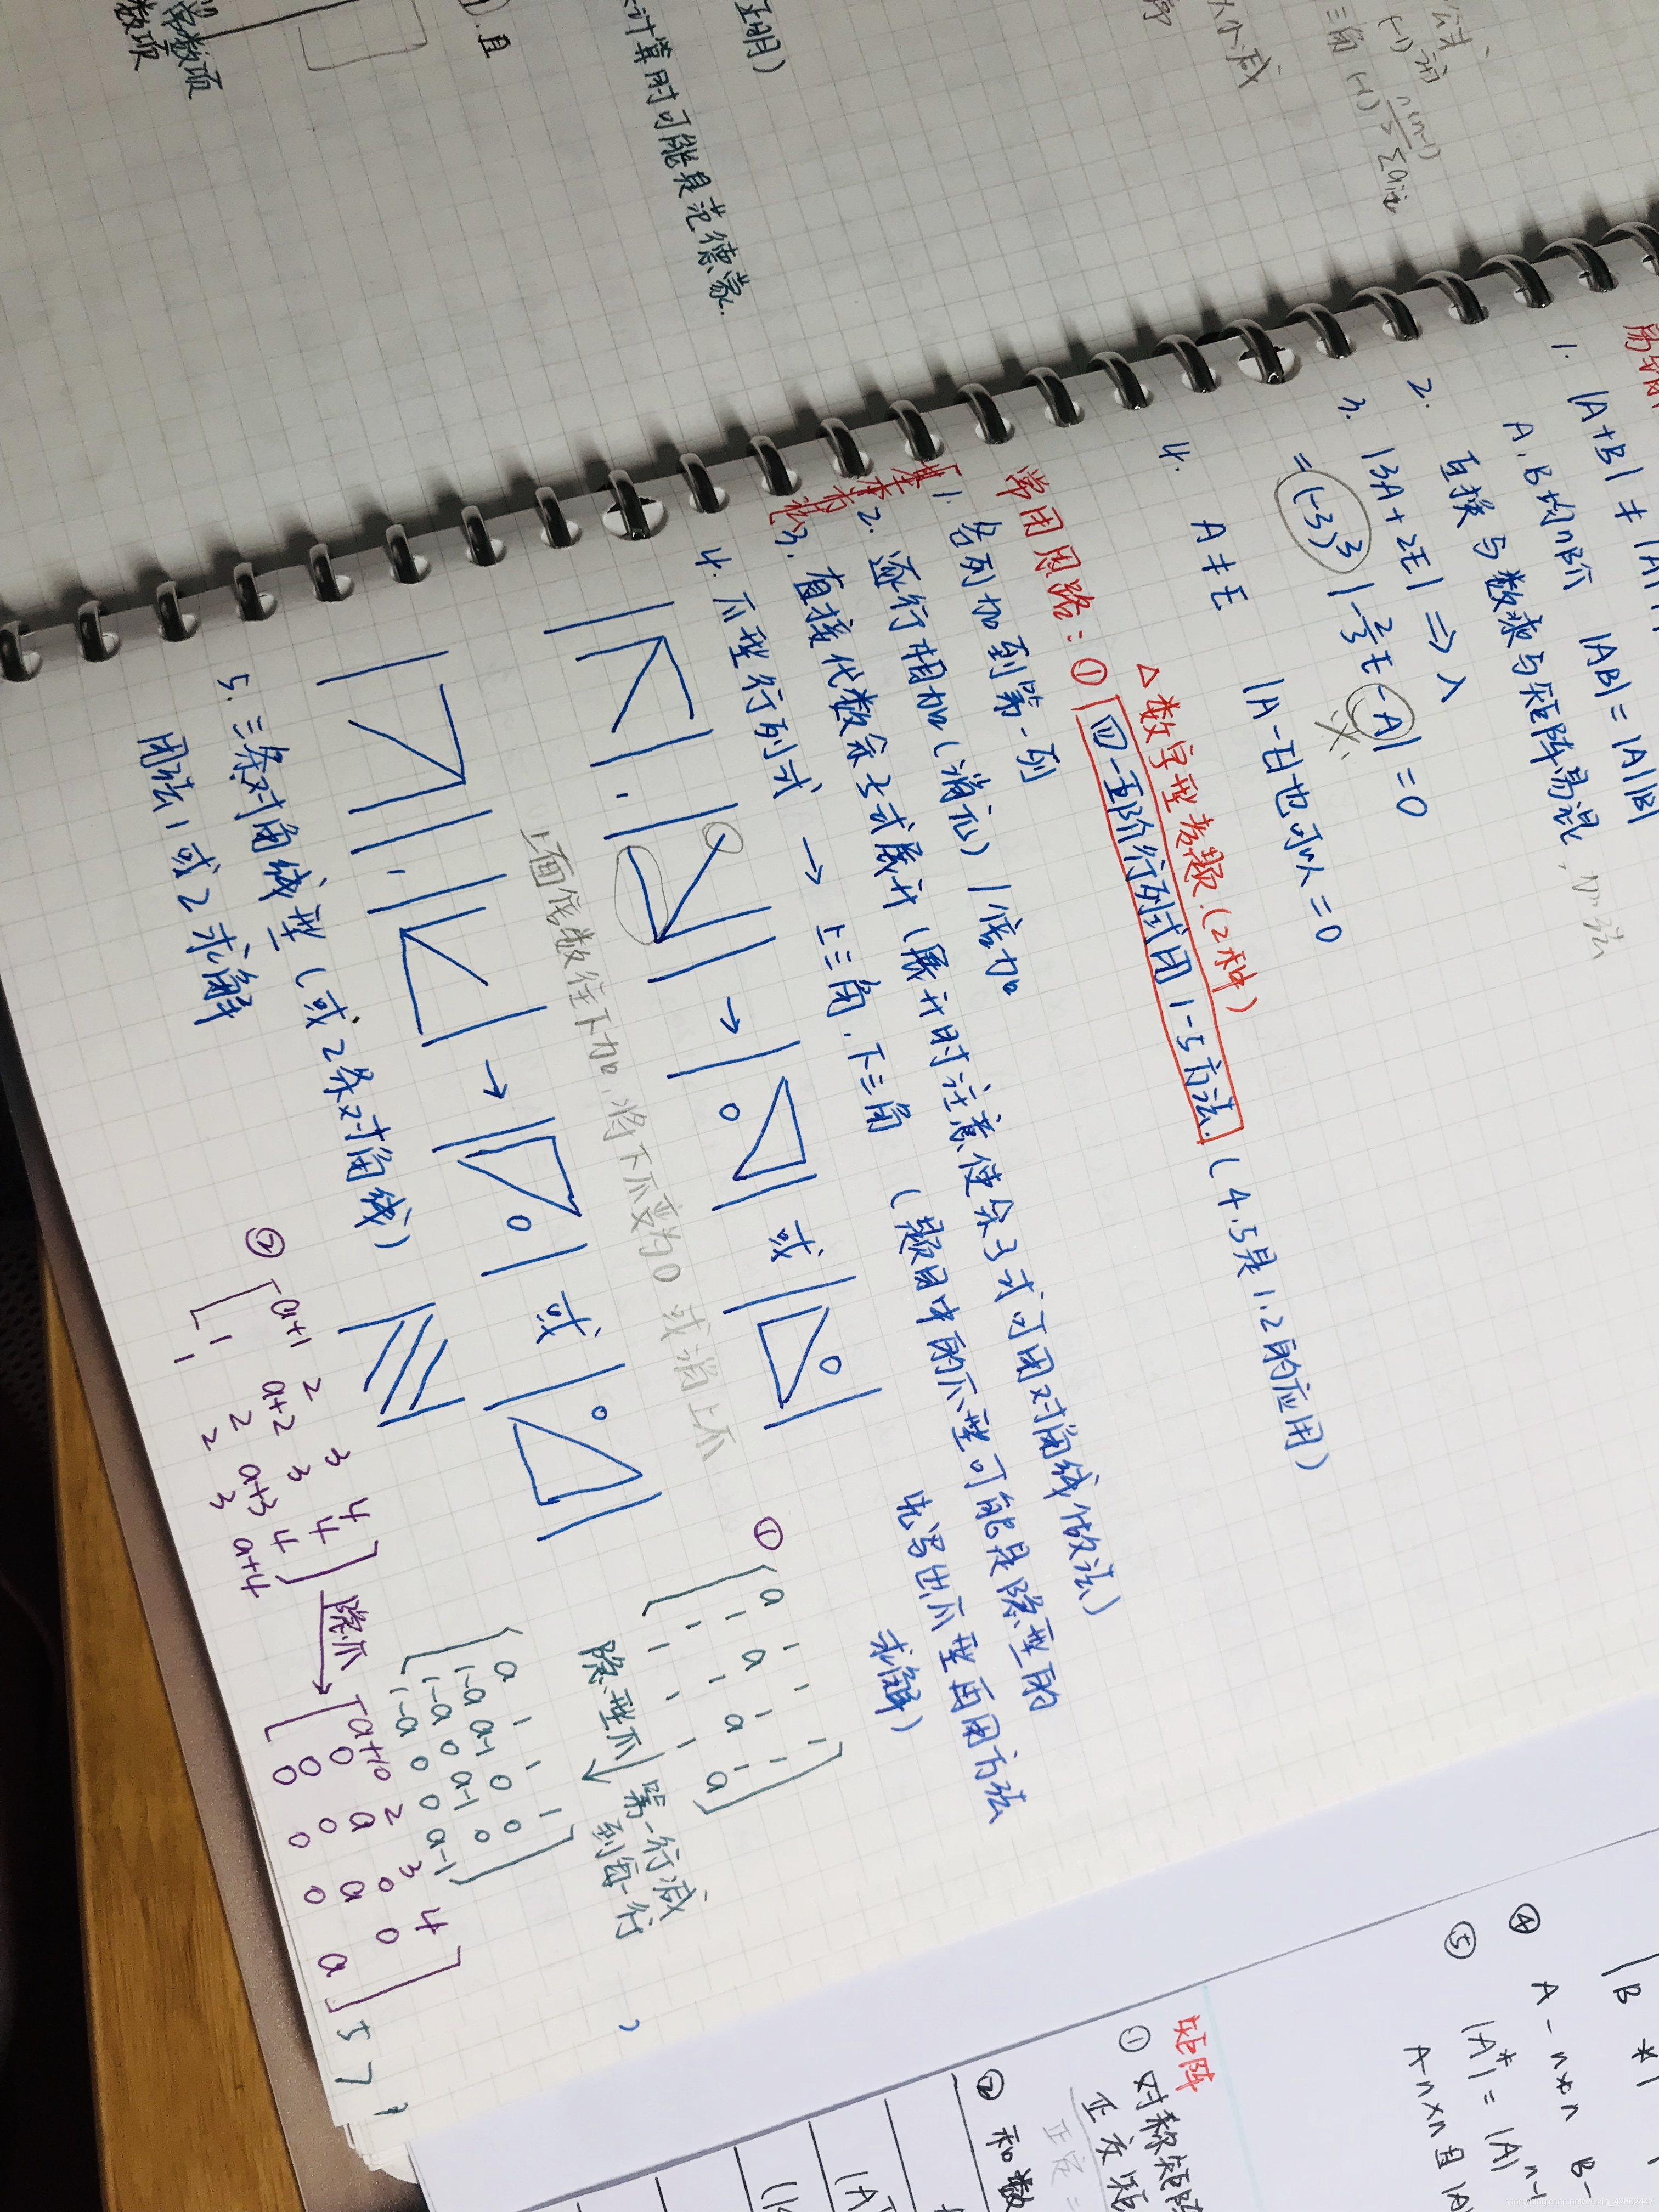 正明)
计算时可能是范德蒙.
常数项
数项
且
大小减
1. |A+B| ≠ |A|
A.B均n阶 |AB| = |A||B|
2. 互换与数乘与矩阵易混,
3. |3A+2E| ⇒ λ
= (-3)³ |-2/3 E - A| = 0
4. A≠E |A-E|也可以=0
△数字型考题.(2种)
常用思路: ① 四-五阶行列式用1-5方法. (4.5是1.2的应用)
1. 各列加到第一列
2. 逐行相加(消元) 1倍加
3. 直接代数余子式展开 (展开时注意使余子式可用对角线做法)
4. 爪型行列式 → 上三角.下三角 (题目中的爪型可能是隐型的
先写出爪型再用方法
求解)
→ 0 或 0
上面倍数往下加,将下爪变为0 或消上爪
→ 0 或 0
5. 三条对角线型 (或2条对角线)
用法1或2求解
① a 1 1 1
1 a 1 1
1 1 a 1
1 1 1 a
隐型爪 ↓ 第一行减
到每一行
a 1 1 1
1-a a-1 0 0
1-a 0 a-1 0
1-a 0 0 a-1
② a+1 2 3 4
1 a+2 3 4
1 2 a+3 4
1 2 3 a+4
隐爪 →
a+10 2 3 4
0 a 0 0
0 0 a 0
0 0 0 a
5 7
矩阵
① 对称矩阵
正交矩
正定 =
② 和数
|A
④ A - n×n B -
⑤ |A*| = |A|ⁿ⁻¹
A-n×n且|A
B